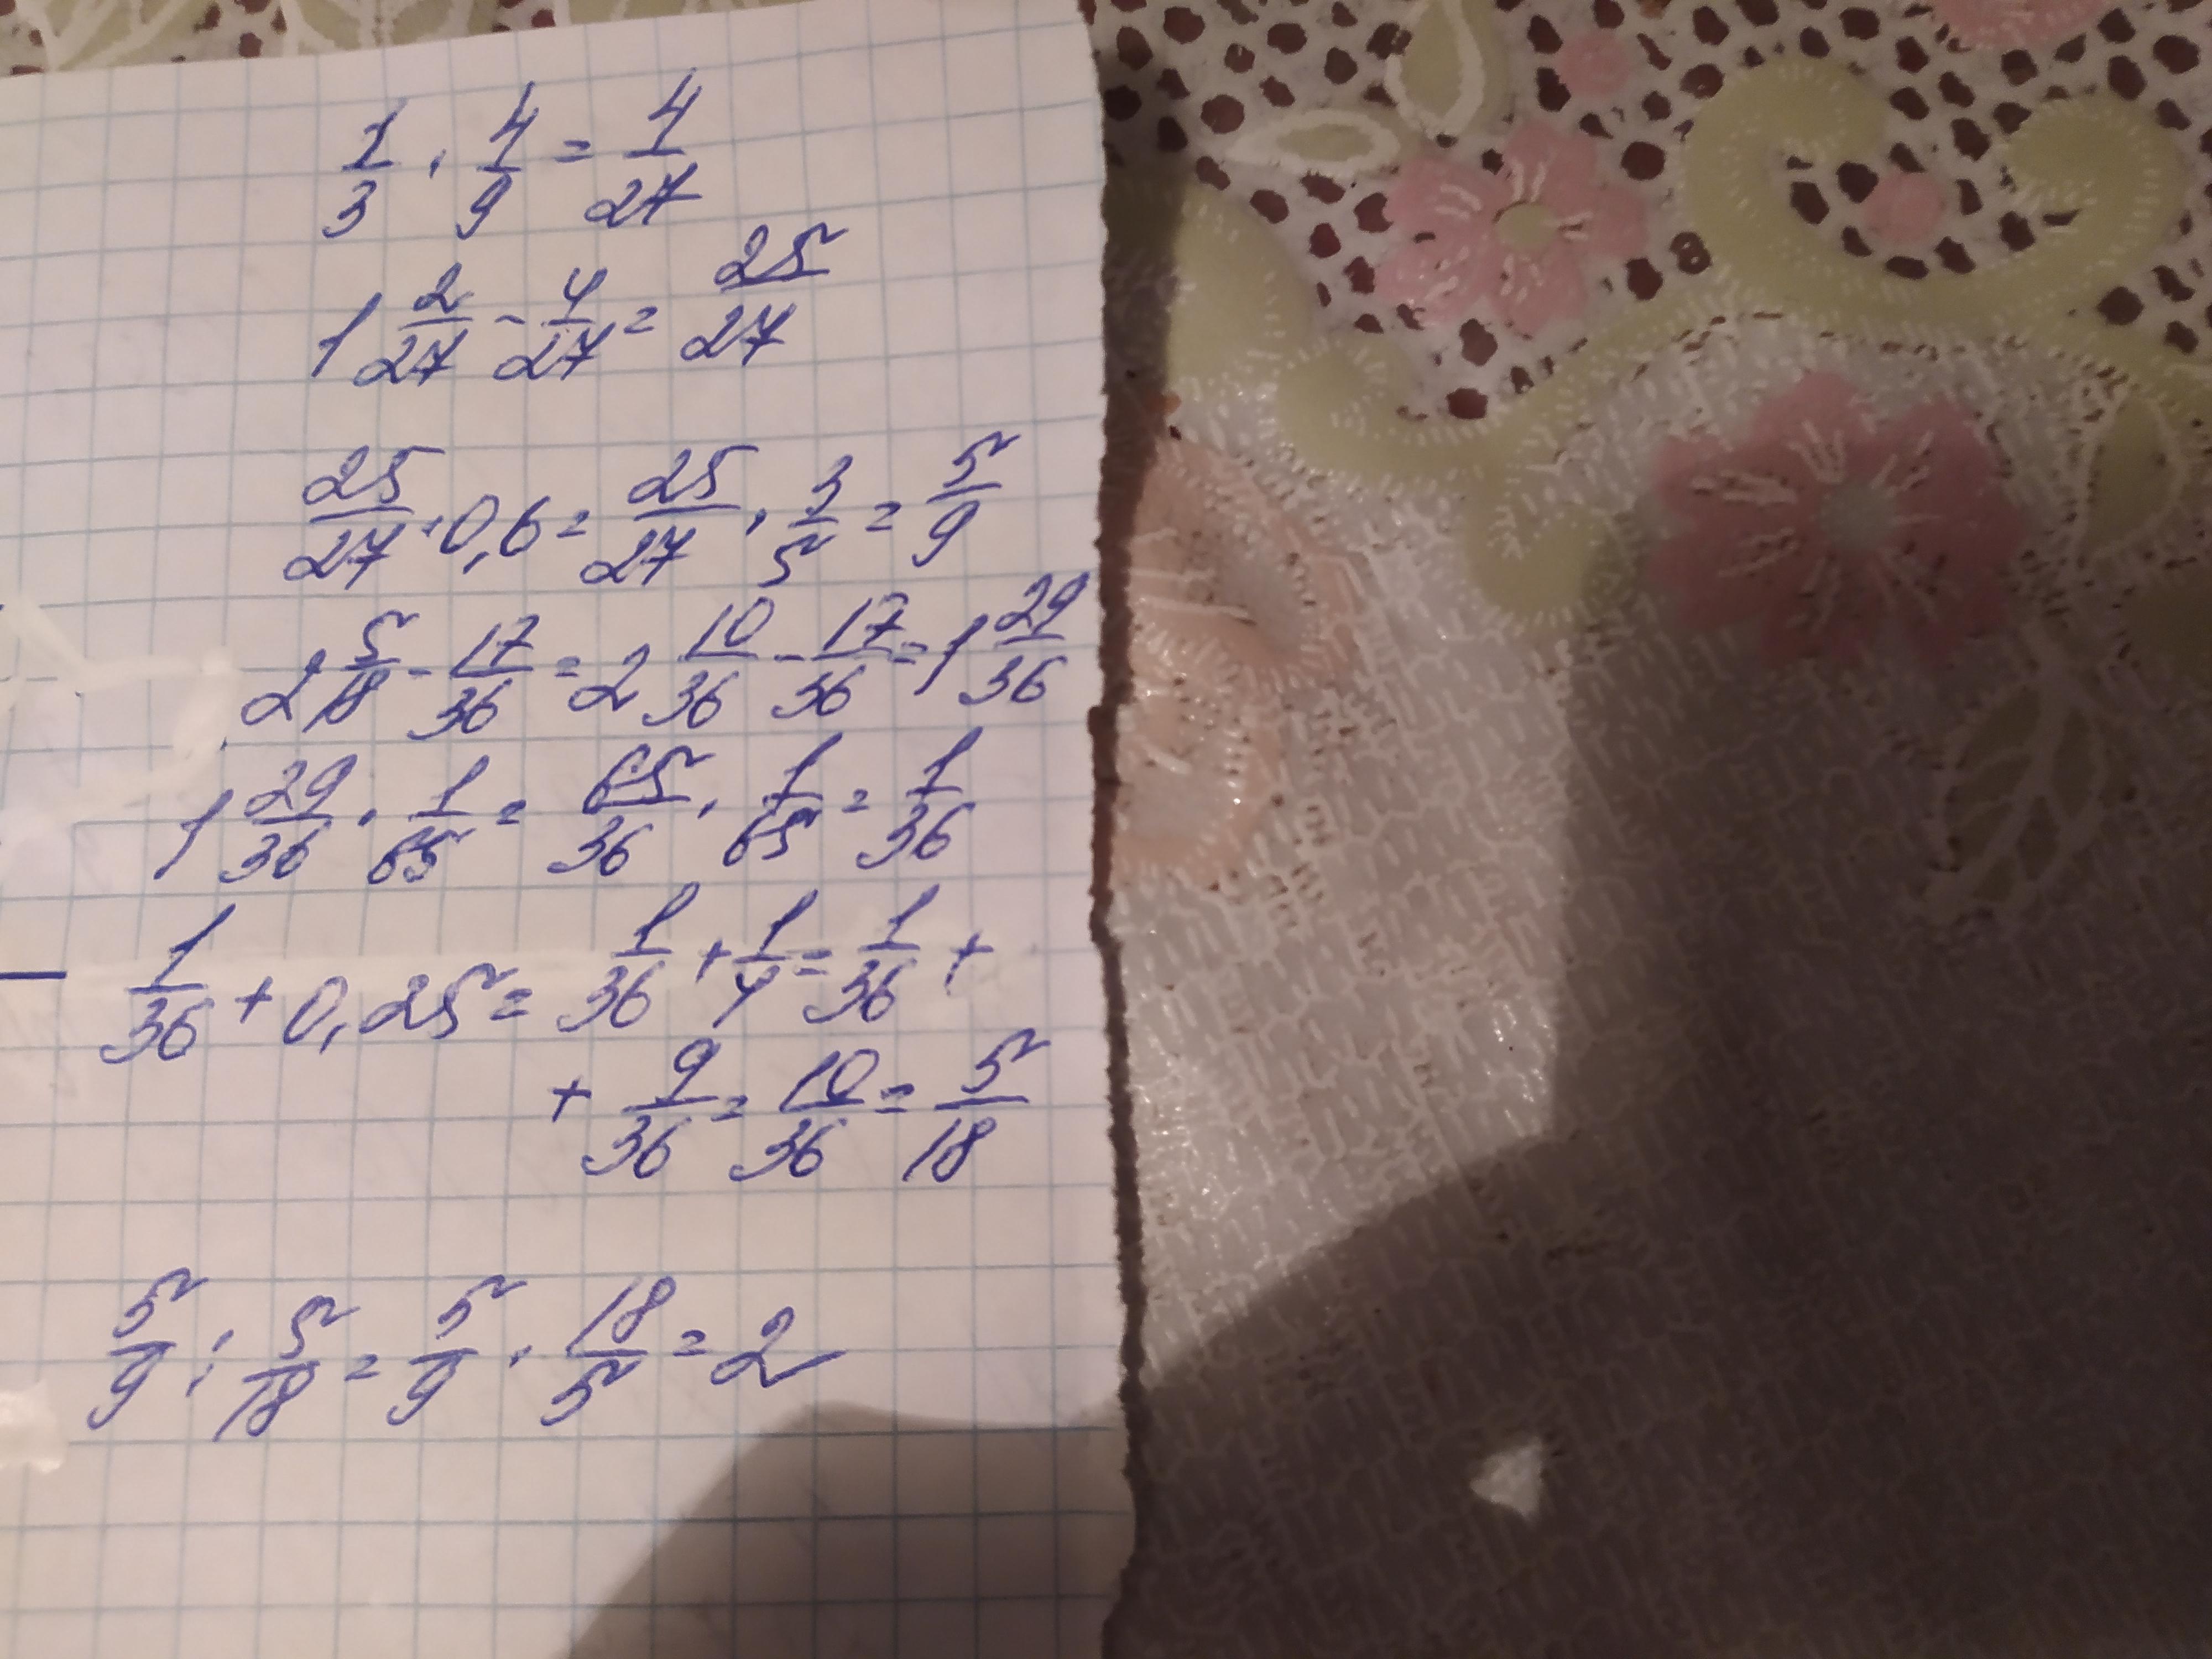 1/3 · 4/9 = 4/27
1 2/27 - 4/27 = 25/27
25/27 · 0,6 = 25/27 · 3/5 = 5/9
2 5/18 - 17/36 = 2 10/36 - 17/36 = 1 29/36
1 29/36 · 1/65 = 65/36 · 1/65 = 1/36
1/36 + 0,25 = 1/36 + 1/4 = 1/36 +
+ 9/36 = 10/36 = 5/18
5/9 : 5/18 = 5/9 · 18/5 = 2